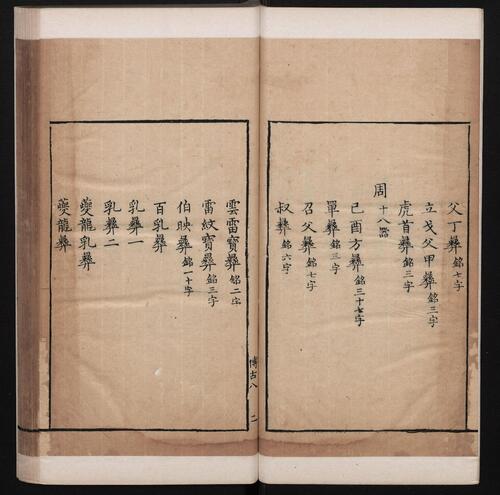 父丁彝銘七字
立戈父甲彝銘三字
虎首彝銘三字
周
十八器
己酉方彝銘三十七字
單彝銘三字
召父彝銘七字
叔彝銘六字
博古八 二
雲雷寶彝銘二字
雷紋寶彝銘三字
伯映彝銘一十字
百乳彝
乳彝一
乳彝二
夔龍乳彝
夔龍彝